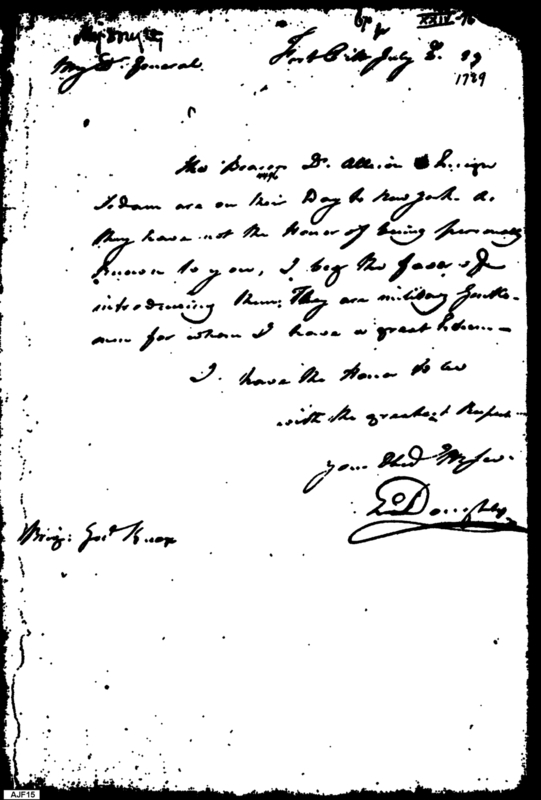 XXIV-76
My Dr. General.
Fort Pitt July 8. 89
1789
The Bearers Dr. Allison & Ensign
are on their Way to New York. As
they have not the Honor of being personally
known to you, I beg the favor of
introducing them. They are military Gentle-
men for whom I have a great Esteem—
I have the Honor to be
with the greatest Respect
your Obed Hble ser.
Doughty
Brig: Genl Knox
AJF15